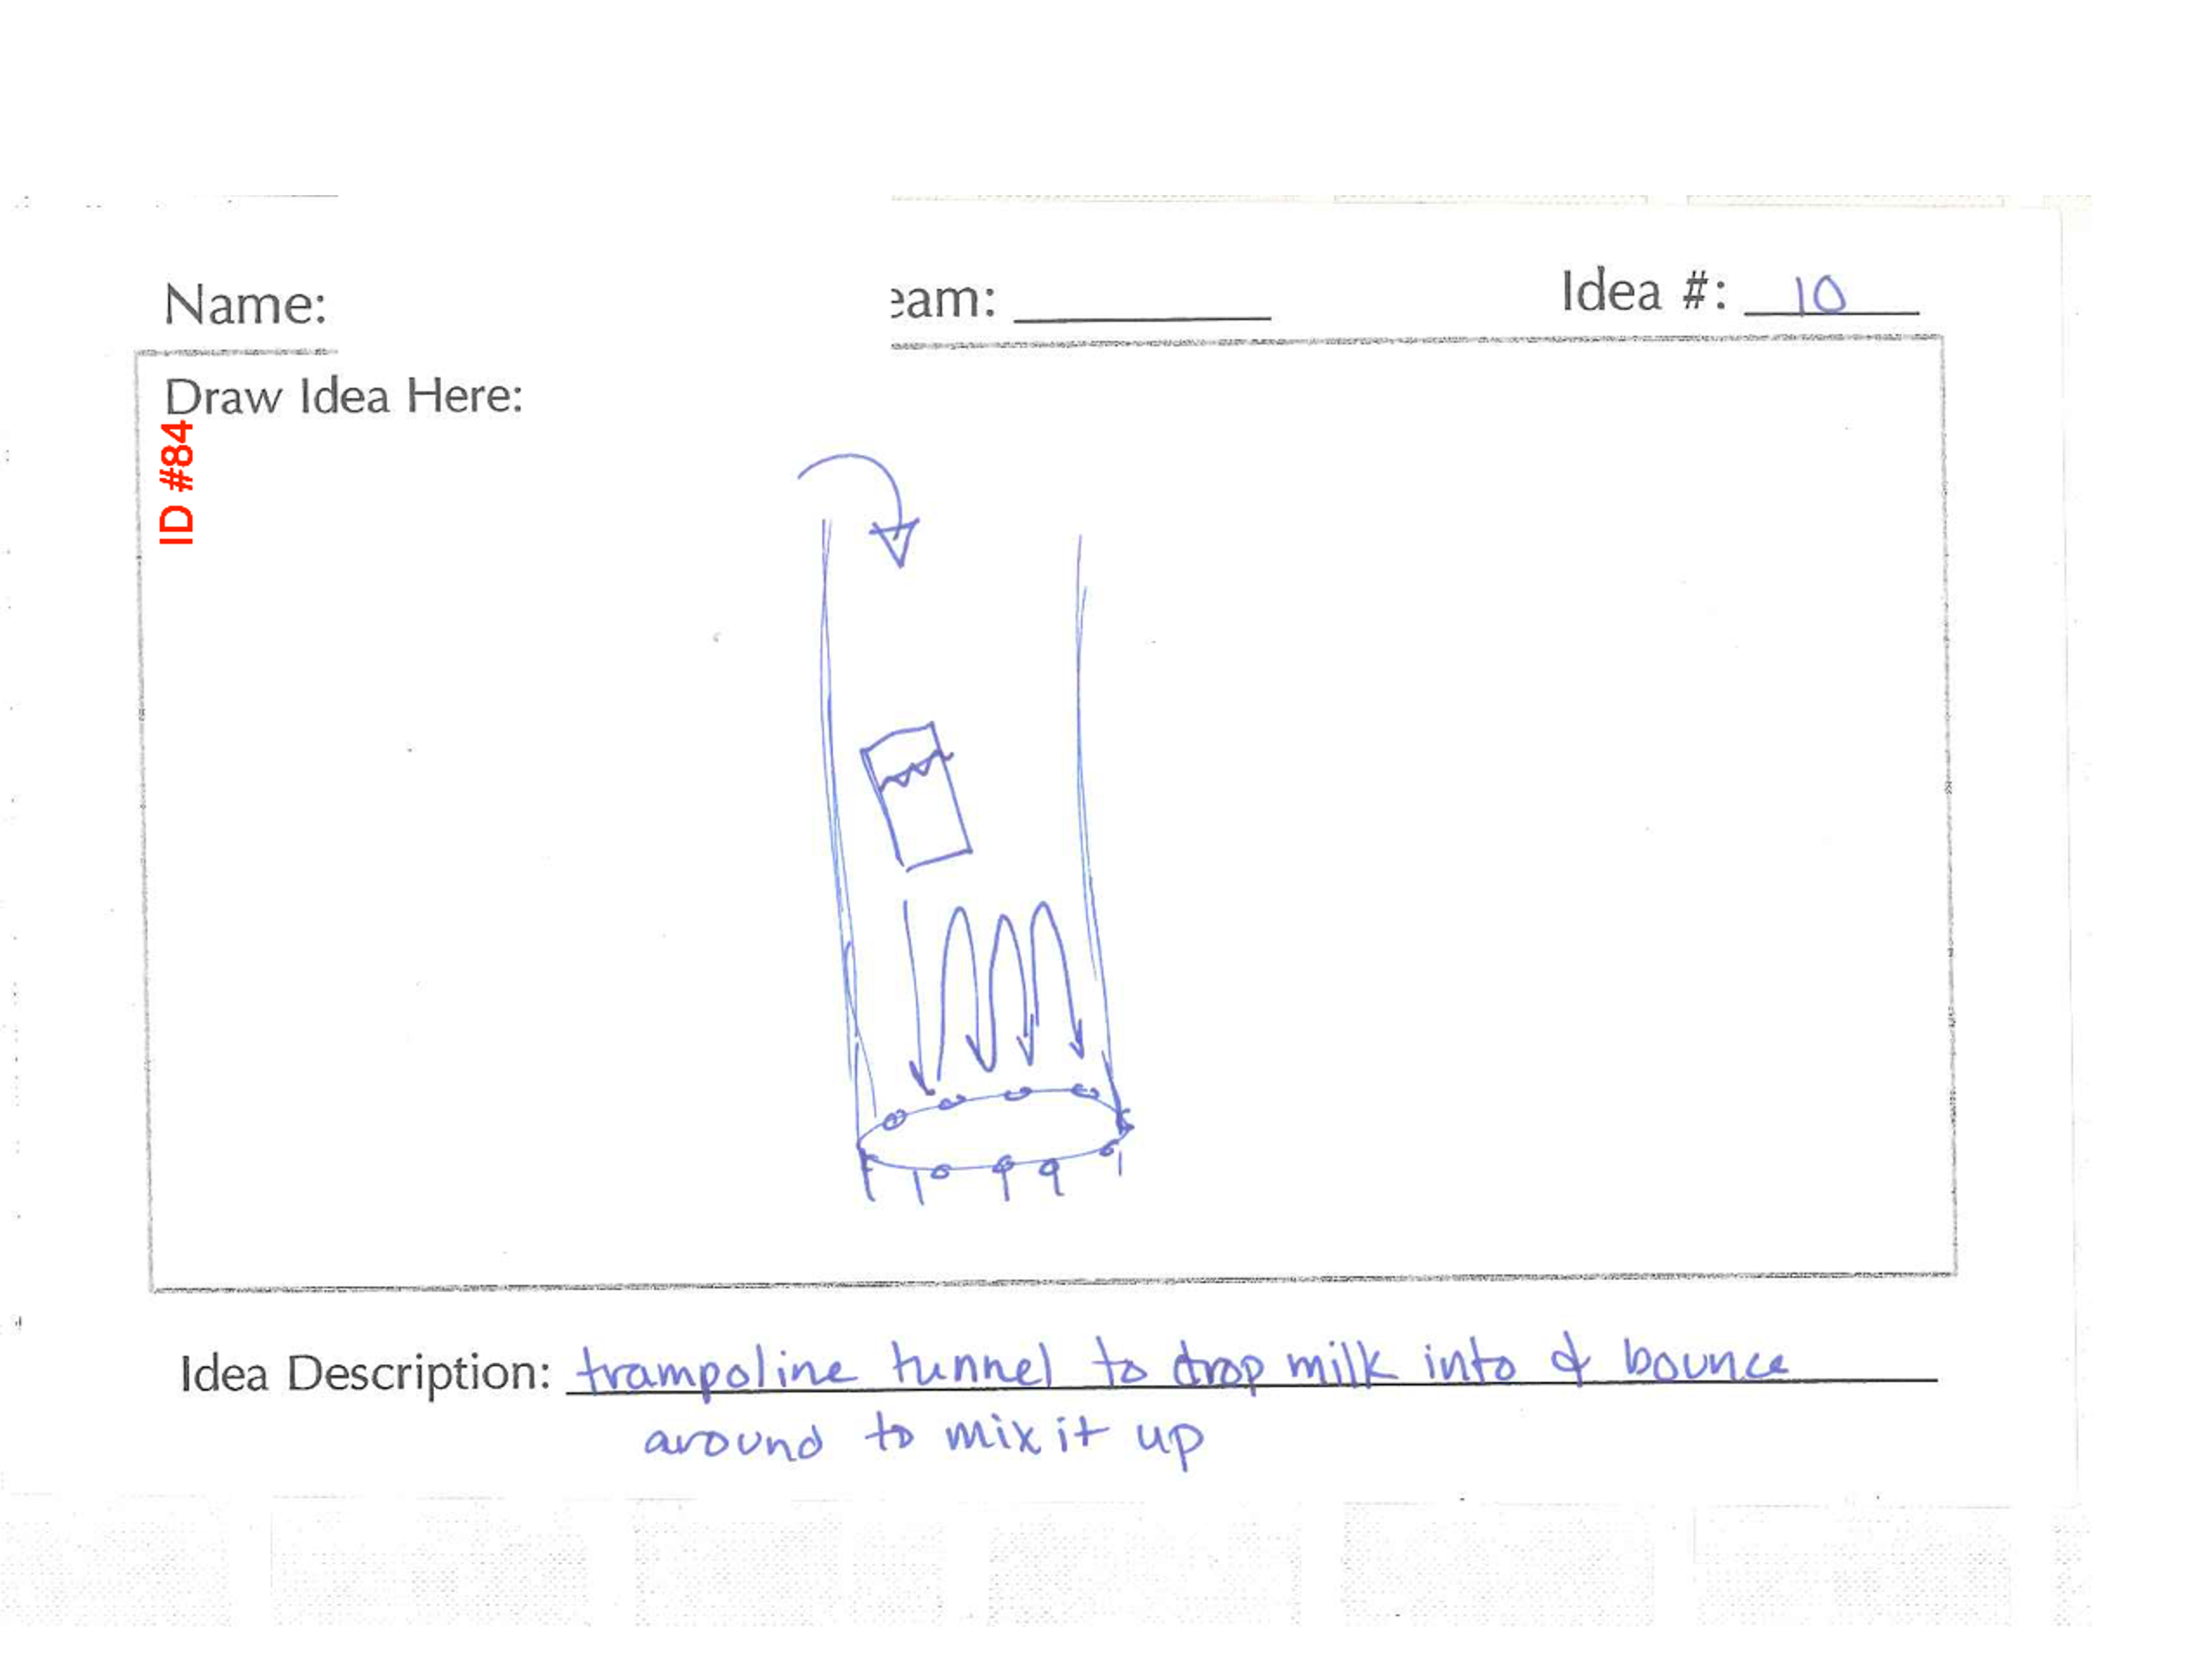 Name:
eam:
Idea #: 10
Draw Idea Here:
ID #84
Idea Description: trampoline tunnel to drop milk into & bounce
around to mix it up